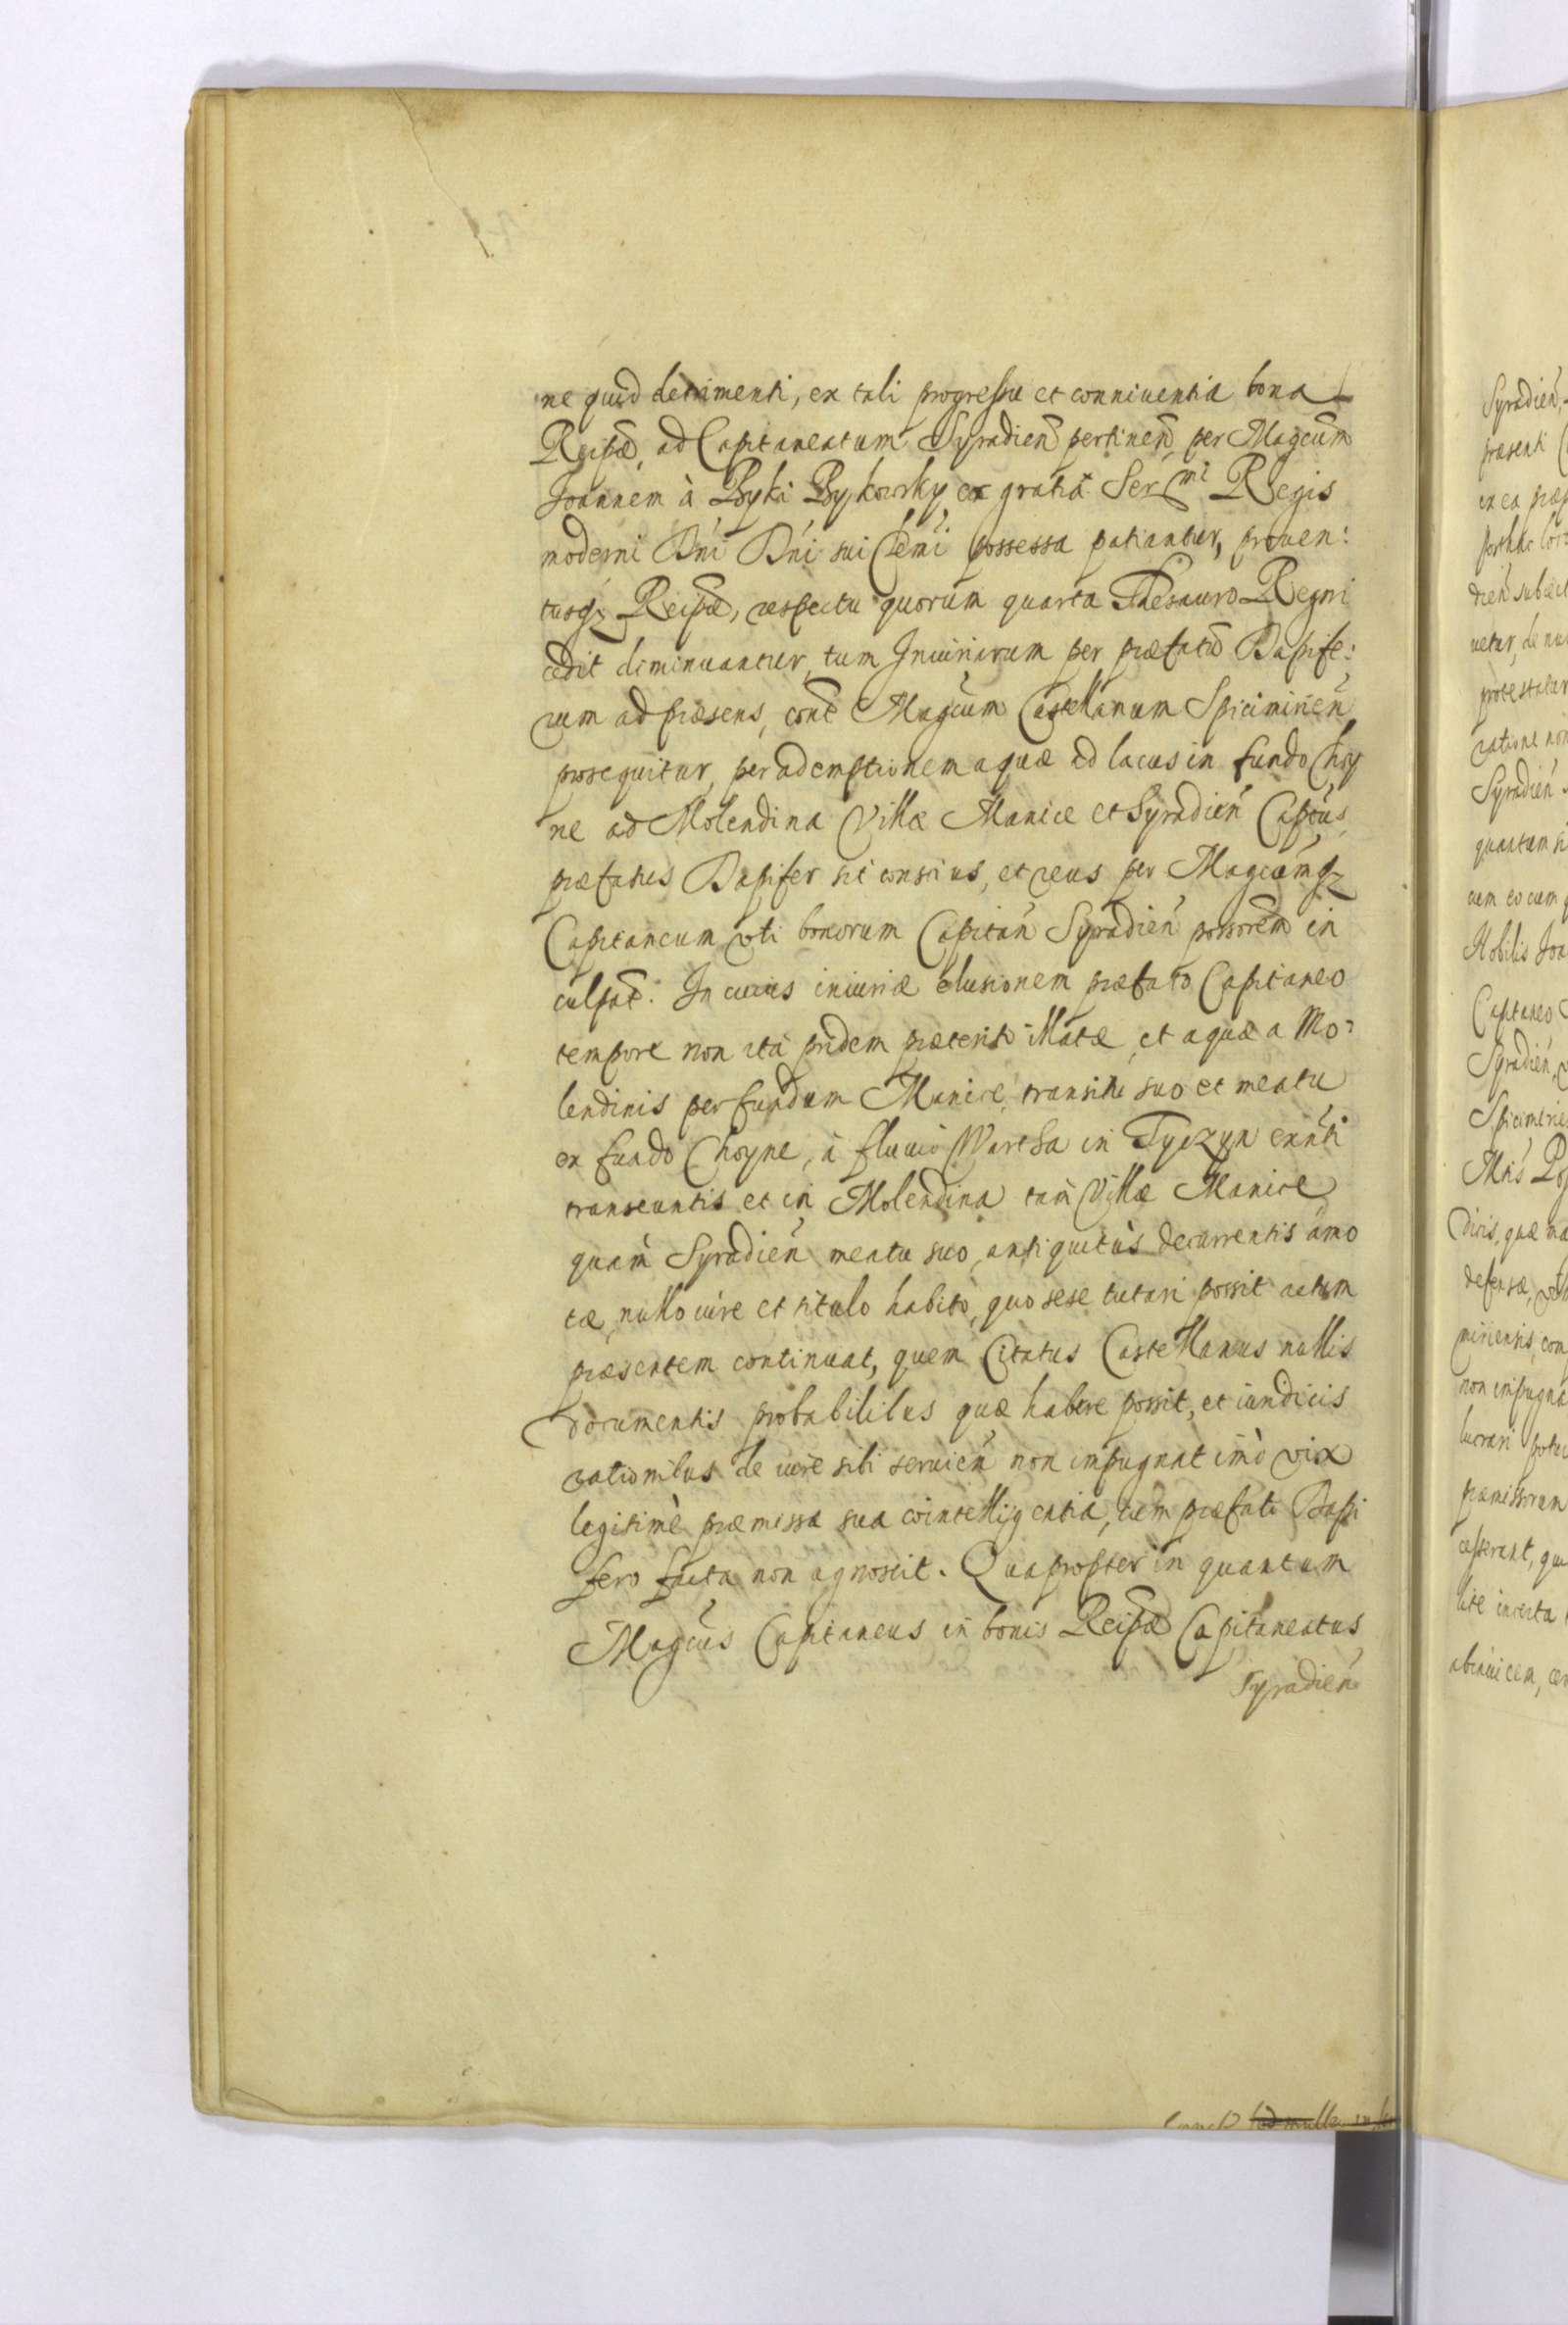 ne quid detrimenti, ex tali progressu et conniuentia bona
Reipæ, ad Capitaneatum Syradien pertinen per Magcum
Joannem à Byki Bykowsky ex gratia Sermi Regis
moderni Dni Dni sui Clemi possessa patiantur, prouen:
tusq; Reipæ, respectu quorum quarta Thesauro Regni
cedit diminuantur, tum Iniuriarum per præfatu Dapife:
rum ad præsens, cont Magcum Castellanum Spicimirien
prosequitur, per ademptionem aquæ ad lacus in fundo Choy
ne ad Molendina Villæ Manice et Syradien Captus,
præfatus Dapifer sit conscius, et reus per Magcumq;
Capitaneum uti bonorum Capitan Syradien possorem in
culpat. In cuius iniuriæ elusionem præfato Capitaneo
tempore non ita pridem præterito illatæ, et aquæ a Mo:
lendinis per fundum Manice, transitu suo et meatu
ex fundo Choyne, à fluuio Wartha in Tyczyn exnti
transeuntis et in Molendina tam Villæ Manice
quam Syradien meatu suo, antiquitus decurrentis amo
tæ, nullo iure et titulo habito, quo sese tutari possit actum
præsentem continuat, quem Citatus Castellanus nullis
documentis probabilibus quæ habere possit, et iuridicis
rationibus de iure sibi seruien non impugnat imò vix
legitimè præmissa sua cointelligentia, cum præfato Dapi
fero facta non agnoscit. Quapropter in quantum
Magcus Capitaneus in bonis Reipæ Capitaneatus
Syradien
Syradien,
præsenti
ex ea præ
dien subiect
uetur, de
protestatur
ratione non
Syradien
quantum
cum eo cum
Nobilis Joa
Capitaneo
Syradien,
Spicimirie
Mtis
dicis, quæ
defensæ,
miriensis, con
non impugna
lucrari potu
præmissorum
cesserant, qu
lite incerta
abinuicem,